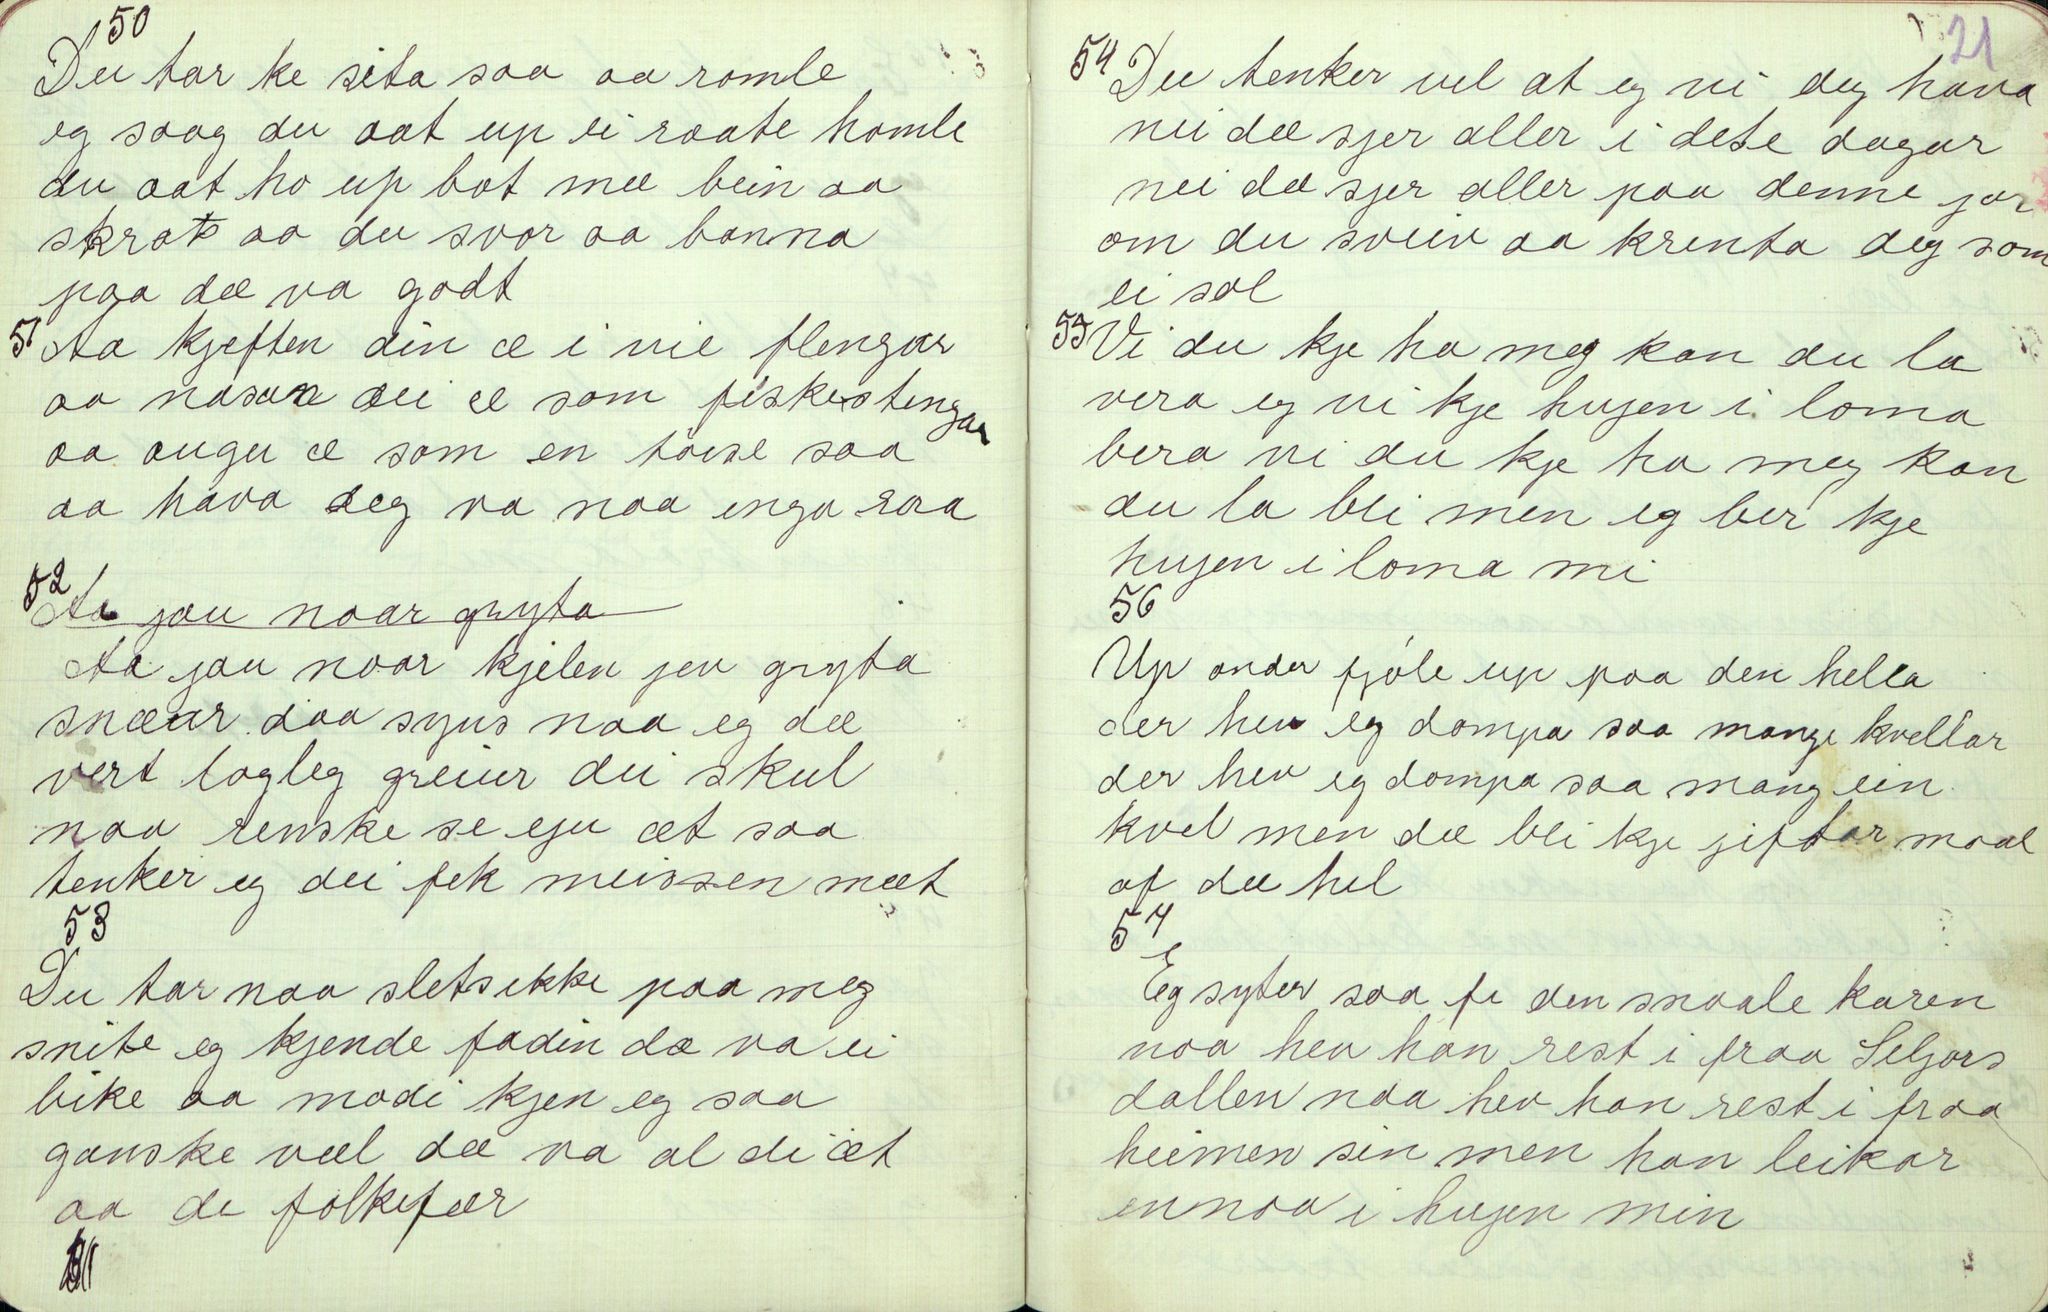 50
Du tar ke sita saa aa romle
eg saag du aat up ei raate homle
du aat ho up bot mæ bein aa
skrat aa du svor aa banna
paa dæ va godt
51 Aa kjeften din æ i nie flengar
aa nasan dei æ som fiskestengar
aa augu æ som en taase saa
aa hava deg va naa inga raa
52
Aa jau naar gryta
Aa jau naar kjelen jev gryta
snæar daa syns naa eg dæ
vert lagleg greiur dei skul
naa renske se eju æt saa
tenker eg dei fek meissen mæt
53
Du tar naa slets ikke paa meg
snite eg kjende fadin dæ va ei
bike aa modi kjen eg saa
ganske væl dæ va al di æt
aa de folkefær
21
54 Du tenker vel at eg vi deg hava
nei dæ sjer aller i dete dagar
nei dæ sjer aller paa denne jor
om du sveiv aa krenta deg som
ei sol
55 Vi du kje ha meg kan du la
vera eg vi kje hugen i loma
bera vi du kje ha meg kan
du la bli men eg ber kje
hugen i loma mi
56
Up onder fjøle up paa den hella
der hev eg dompa saa mange kvellar
der hev eg dompa saa mang ein
kvel men dæ bli kje jiftar maal
af dæ hel
57
Eg syter saa fe den snaale karen
naa hev han rest i fraa Seljors
dallen naa hev han rest i fraa
heimen sin men han leikar
ennaa i hugen min